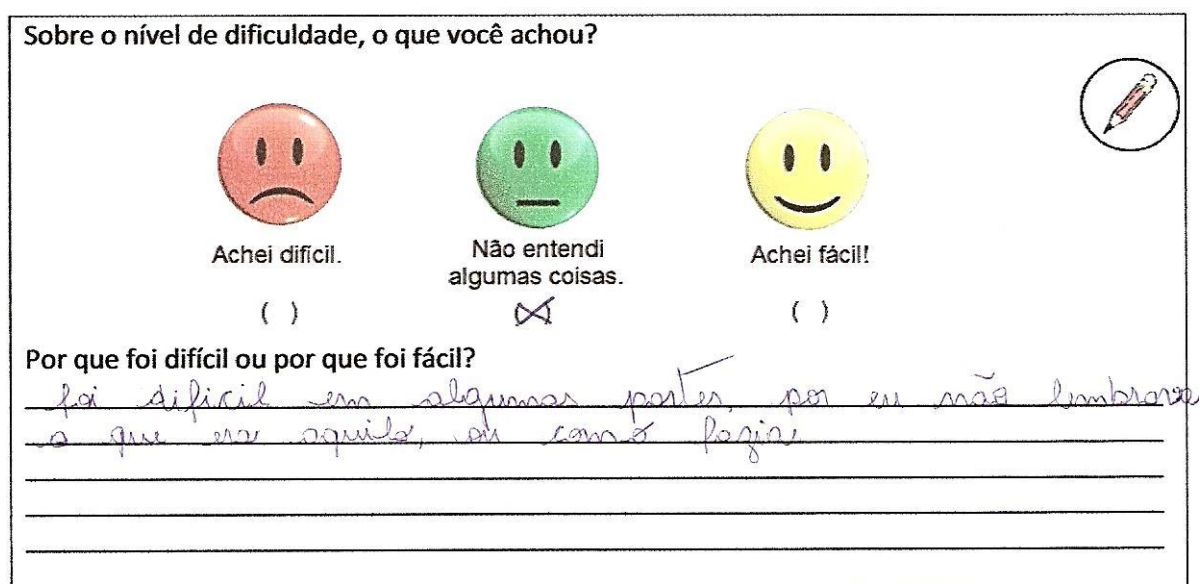 Sobre o nível de dificuldade, o que você achou?
Achei difícil. Não entendi algumas coisas. Achei fácil!
( ) (X) ( )
Por que foi difícil ou por que foi fácil?
foi dificil em algumas partes, por eu não lembrava
o que era aquilo, ou como fazia